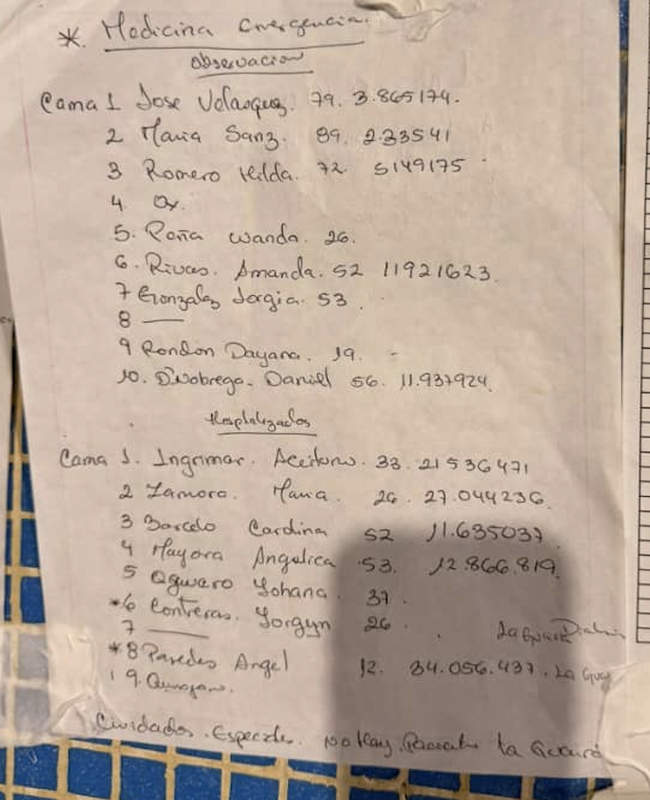 *. Medicina Emergencia.
Observacion
Cama 1 Jose Velasquez. 79. 3.865174.
2 Maria Sanz. 89. 2.33541
3 Romero Hilda. 72. 5149175
4 Ox.
5. Peña Wanda. 26.
6. Rivas. Amanda. 52 11921623.
7 Gonzalez Jorgia. 53.
8 —
9 Rondon Dayana. 19. -
10. D'Nobrega. Daniel 56. 11.937924.
Hospitalizados
Cama 1. Ingrimar. Aceituno. 33. 21536471
2 Zamora. Maria. 26. 27.044236.
3 Barcelo Cardina 52 11.635037.
4 Mayora Angelica 53. 12.866.819.
5 Oguaro Yohana. 37.
*6 Contreras. Yorgyn 26. La Guaira
7 —
*8 Paredes Angel 12. 34.056.437. La Gua
9.
Cuidados. Especiales. No Hay. Paciente La Guaira